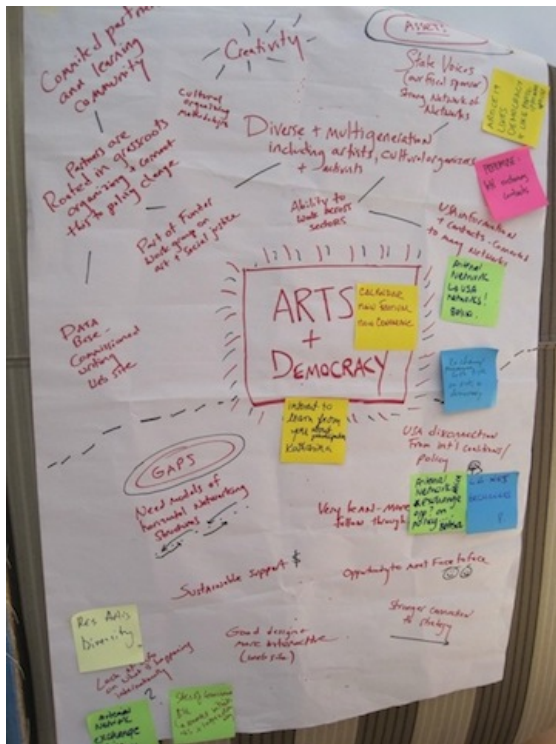 Commited partners
and learning
community
Creativity
ASSETS
State Voices
(our fiscal sponsor)
Strong Network of
Networks
Cultural
organizing
methodologies
Diverse + multigeneration
including artists, cultural organizers
+ activists
Partners are
Rooted in grassroots
organizing + connect
this to policy change
Part of Funder
Work group on
art + Social justice
Ability to
work across
sectors
USA information
+ contacts - Connected
to many Networks
Arterial
Network
USA
Networks!
DATA
Base -
Commissioned
writing
Web site
ARTS
+
DEMOCRACY
CALENDAR
interest to
learn from
you about
USA disconnection
From int'l coalitions/
policy
GAPS
Need models of
horizontal Networking
Structures
Very lean - more
follow through
Arterial
Network
exchange
on
policy
Sustainable support $
Opportunity to meet Face to face
Stronger connection
to strategy
Good design -
more interactive
(web site)
Res Artis
Diversity
Lack of info
on what's happening
internationally
?
Arterial
Network
exchange